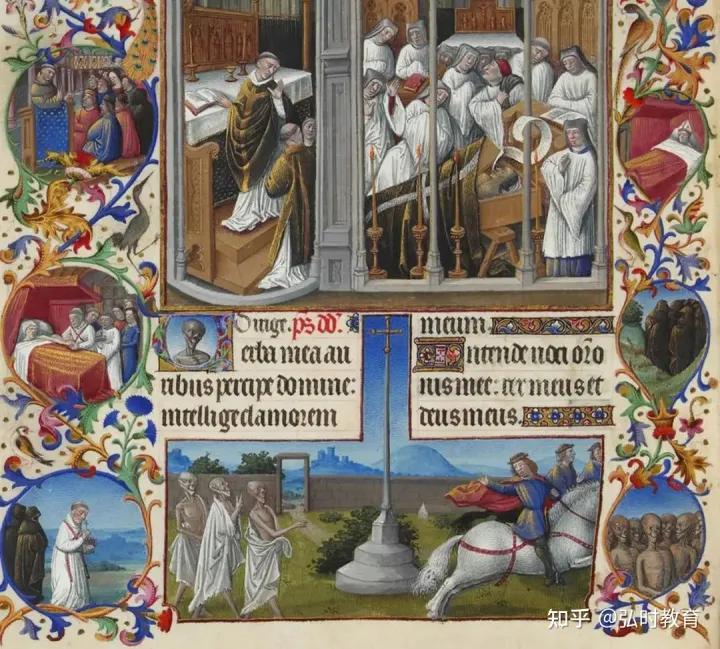 Dirige. ps dd.
erba mea au
ribus percipe domine:
intellige clamorem
meum.
Intende uoci oro
nis mee: rex meus et
deus meus.
知乎 @弘时教育